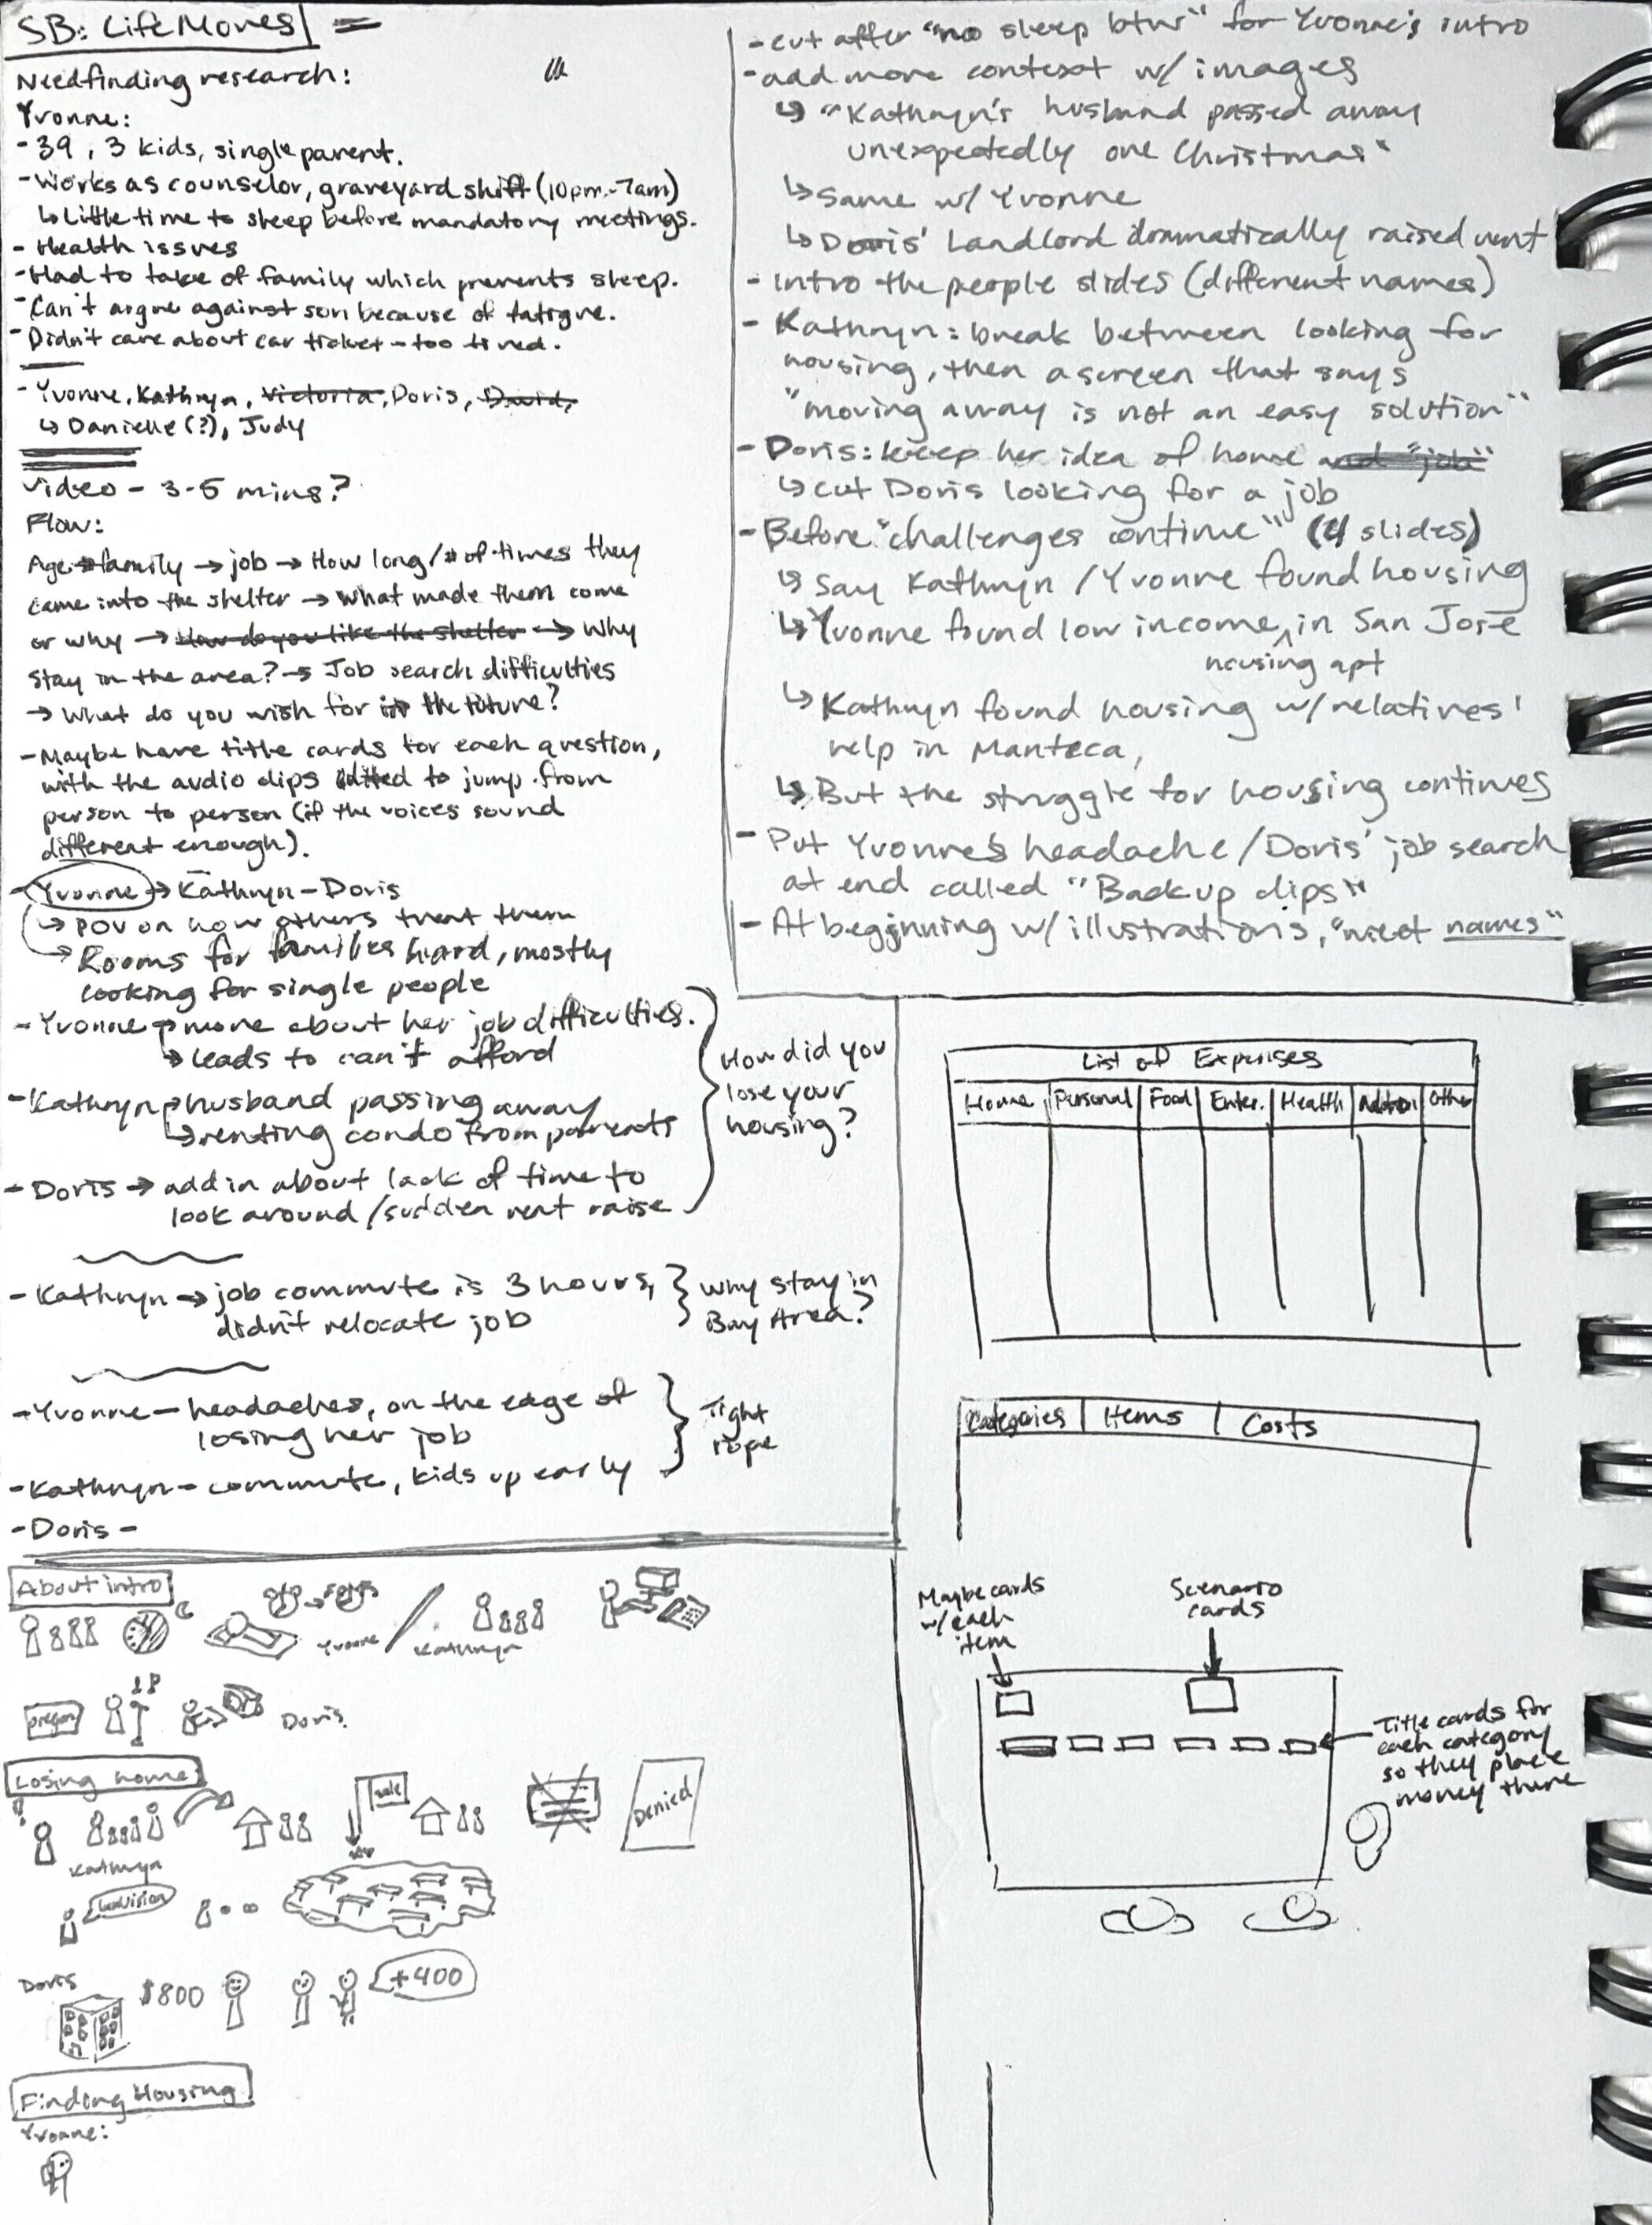 SB: LifeMoves
Needfinding research:
Yvonne:
- 39, 3 kids, single parent.
- Works as counselor, graveyard shift (10pm-7am)
↳ Little time to sleep before mandatory meetings.
- Health issues
- Had to take of family which prevents sleep.
- Can't argue against son because of fatigue.
- Didn't care about car ticket - too tired.
- Yvonne, Kathryn, Victoria, Doris, David,
↳ Danielle (?), Judy
Video - 3-5 mins?
Flow:
Age → family → job → How long/# of times they
came into the shelter → What made them come
or why → How do you like the shelter → Why
stay in the area? → Job search difficulties
→ What do you wish for in the future?
- Maybe have title cards for each question,
with the audio clips edited to jump from
person to person (if the voices sound
different enough).
- Yvonne → Kathryn - Doris
↳ POV on how others treat them
→ Rooms for families hard, mostly
looking for single people
- Yvonne → more about her job difficulties.
↳ leads to can't afford
- Kathryn → husband passing away
↳ renting condo from parents
- Doris → add in about lack of time to
look around/sudden rent raise
How did you
lose your
housing?
- Kathryn → job commute is 3 hours,
didn't relocate job
Why stay in
Bay Area?
- Yvonne - headaches, on the edge of
losing her job
- Kathryn - commute, kids up early
- Doris -
Tight
rope
- cut after "no sleep btw" for Yvonne's intro
- add more context w/ images
↳ "Kathryn's husband passed away
unexpectedly one Christmas"
↳ Same w/ Yvonne
↳ Doris' Landlord dramatically raised rent
- Intro the people slides (different names)
- Kathryn: break between looking for
housing, then a screen that says
"moving away is not an easy solution"
- Doris: keep her idea of home and "job"
↳ cut Doris looking for a job
- Before "challenges continue" (4 slides)
↳ Say Kathryn / Yvonne found housing
↳ Yvonne found low income ^ in San José
housing apt
↳ Kathryn found housing w/ relatives'
help in Manteca,
↳ But the struggle for housing continues
- Put Yvonne's headache / Doris' job search
at end called "Backup clips"
- At beginning w/ illustrations, "meet names"
List of Expenses
Home | Personal | Food | Enter. | Health | | Other
Categories | Items | Costs
Maybe cards
w/ each
item
Scenario
cards
Title cards for
each category
so they place
money there
About intro
Yvonne
Kathryn
Doris
Losing home
sale
Denied
Kathryn
Doris
$800
+400
Finding Housing
Yvonne: